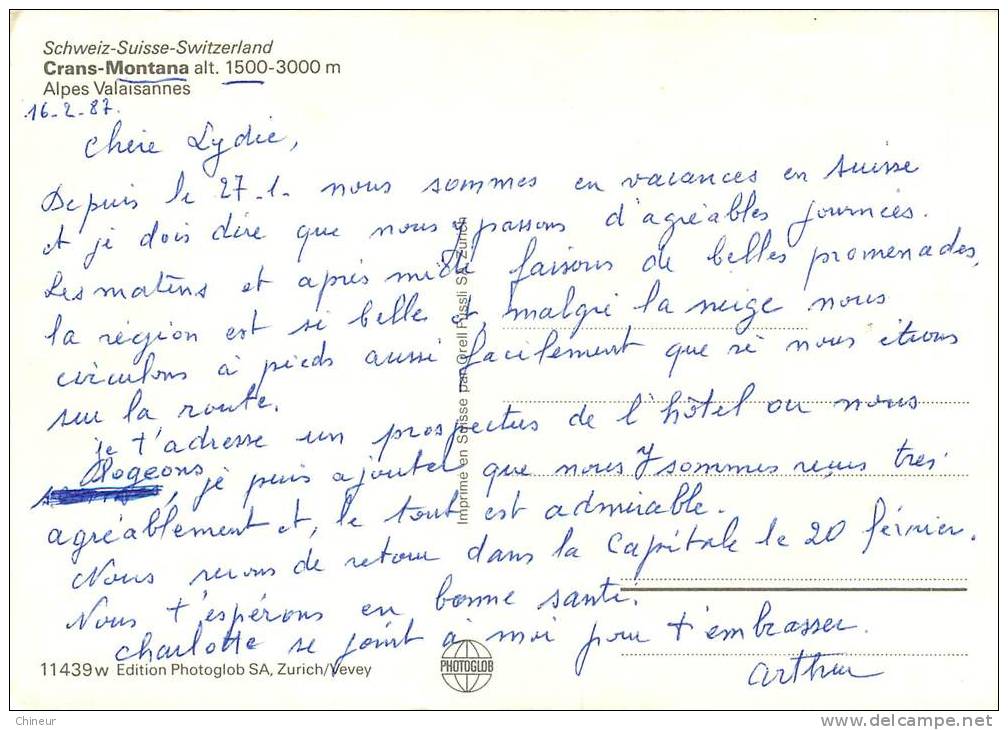 Schweiz-Suisse-Switzerland
Crans-Montana alt. 1500-3000 m
Alpes Valaisannes
16-2-87.
Chère Lydie,
Depuis le 27-1- nous sommes en vacances en Suisse
et je dois dire que nous y passons d'agréables journées.
Les matins et après midi faisons de belles promenades,
la région est si belle et, malgré la neige nous
circulons à pieds aussi facilement que si nous étions
sur la route.
je t'adresse un prospectus de l'hôtel ou nous
logeons, je puis ajouter que nous y sommes reçus très
agréablement et, le tout est admirable.
Nous serons de retour dans la Capitale le 20 février.
Nous t'espérons en bonne santé.
Charlotte se joint à moi pour t'embrasser.
Arthur
Imprimé en Suisse par Orell Füssli SA, Zurich
11439w Edition Photoglob SA, Zurich/Vevey
PHOTOGLOB
Chineur
www.delcampe.net